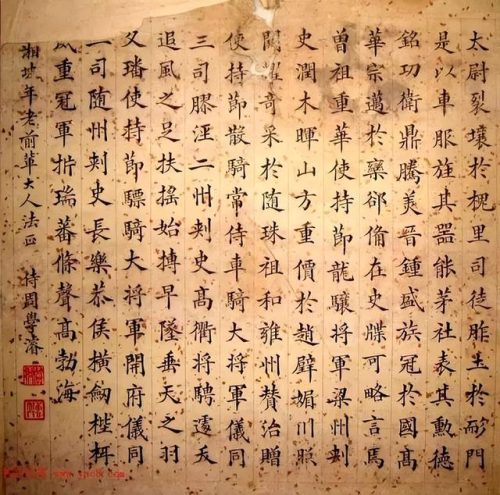 太尉裂壤於槐里司徒胙土於耏門
是以車服旌其器能茅社表其勳德
銘功衛鼎騰美晉鍾盛族冠於國高
華宗邁於欒郤俻在史牒可略言焉
曾祖重華使持節龍驤將軍梁州刺
史潤木暉山方重價於趙璧媚川照
闊耀奇采於隨珠祖和雍州贊治贈
使持節散騎常侍車騎大將軍儀同
三司膠涇二州刺史高衢將騁遽夭
追風之足扶搖始搏早墜垂天之羽
父璠使持節驃騎大將軍開府儀同
司隨州刺史長樂恭侯橫劍梐枑
威重冠軍析瑞蕃條聲高勃海
湘坡年老前輩大人法正 學濬